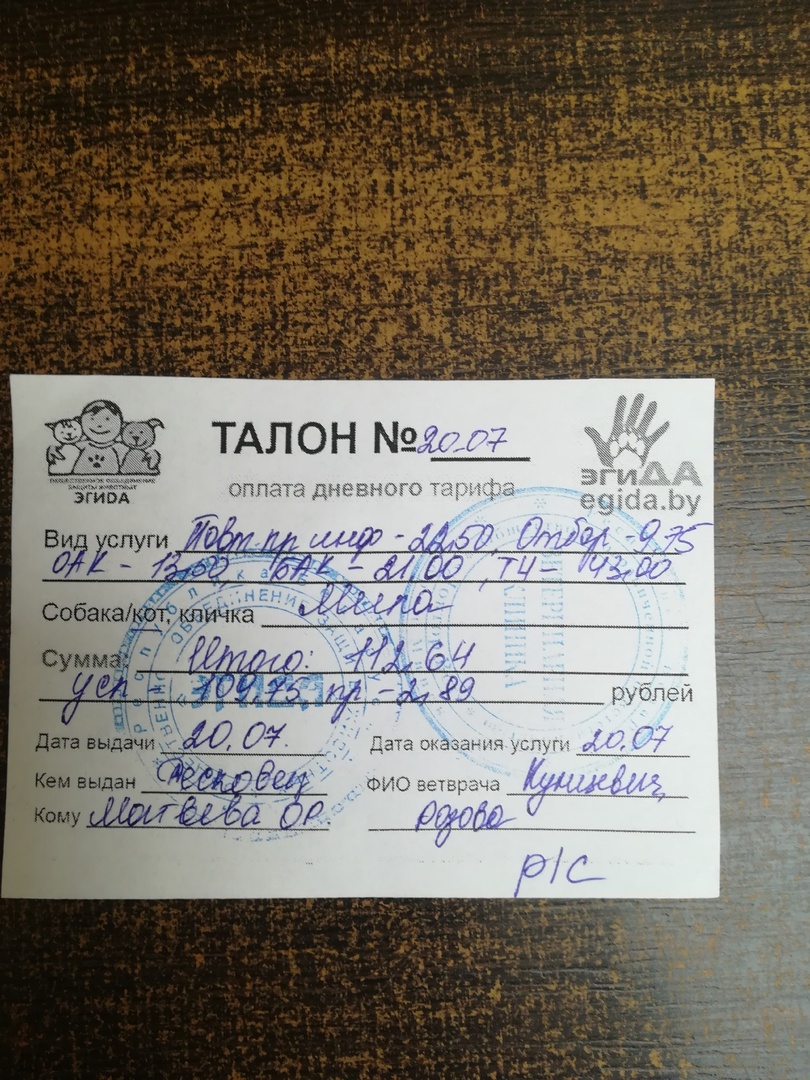 ОБЩЕСТВЕННОЕ ОБЪЕДИНЕНИЕ
ЗАЩИТЫ ЖИВОТНЫХ
ЭГИДА
ТАЛОН № 20.07
оплата дневного тарифа
эгиДА
egida.by
Вид услуги Повт.пр инф - 22,50, Отбор - 9,75
ОАК - 13,50 БАК - 21,00, Т4 - 43,00
Собака/кот, кличка Мила
Сумма Итого: 112,64
усл - 109,75 пр - 2,89 рублей
Дата выдачи 20.07.
Дата оказания услуги 20.07
Кем выдан
ФИО ветврача Куникевич,
Кому Матвеева ОР
Розова
р/с